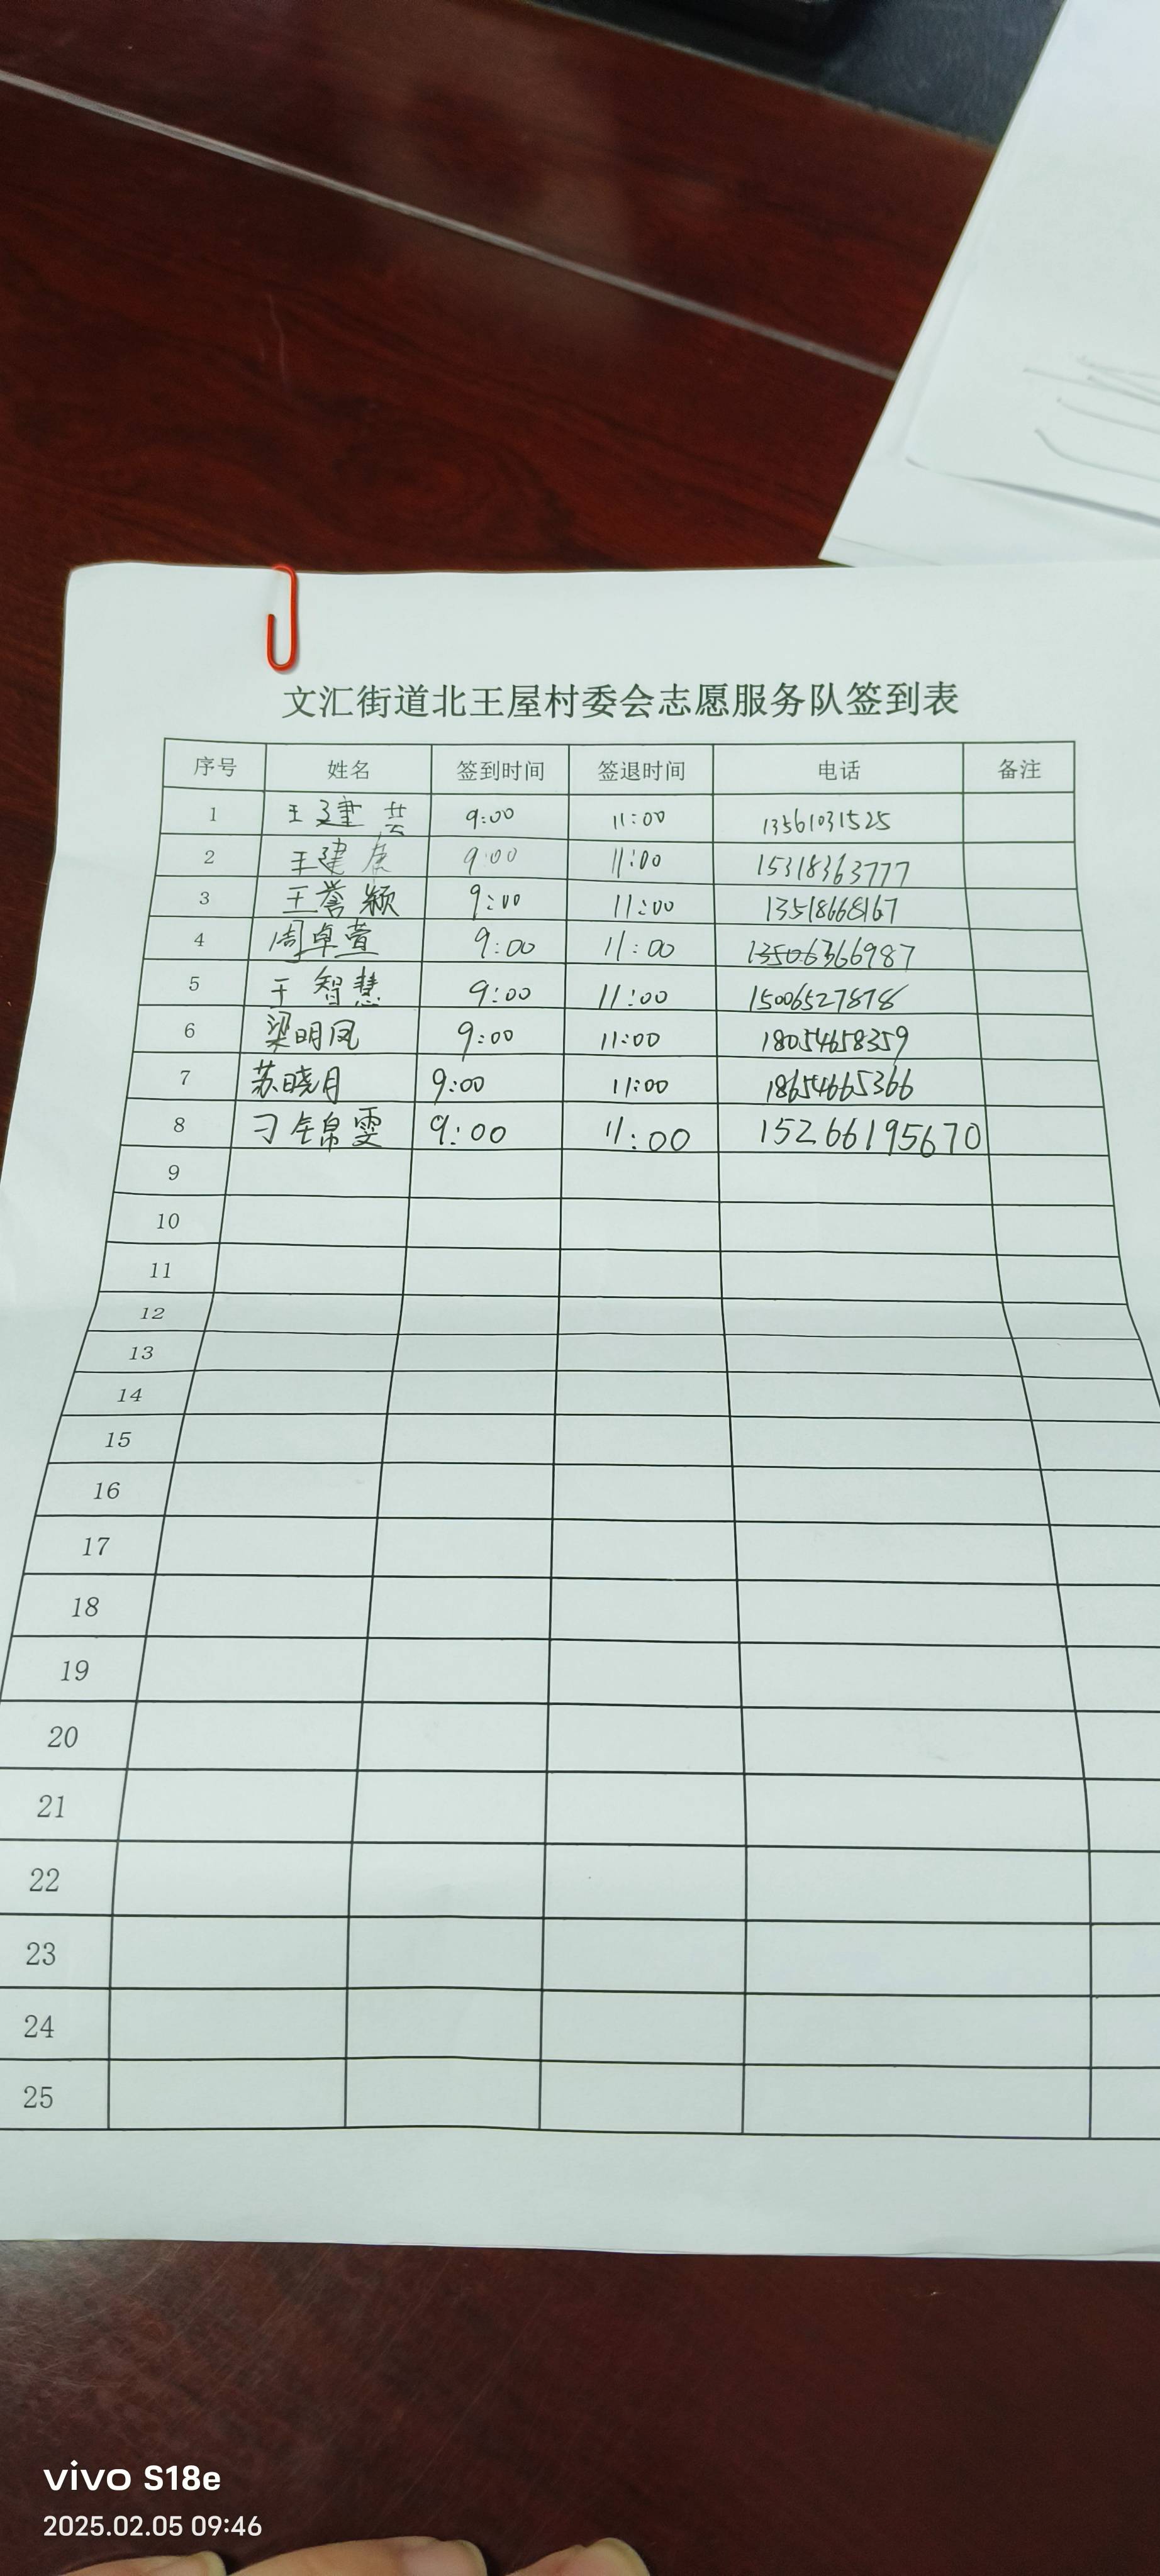 文汇街道北王屋村委会志愿服务队签到表
序号 姓名 签到时间 签退时间 电话 备注
1 王建芸 9:00 11:00 13561031525
2 王建 9:00 11:00 15318363777
3 王誉颖 9:00 11:00 13518668167
4 周卓萱 9:00 11:00 13506366987
5 于智慧 9:00 11:00 15006527878
6 梁明凤 9:00 11:00 18054658359
7 苏晓月 9:00 11:00 18654665366
8 刁锦雯 9:00 11:00 15266195670
9
10
11
12
13
14
15
16
17
18
19
20
21
22
23
24
25
vivo S18e
2025.02.05 09:46